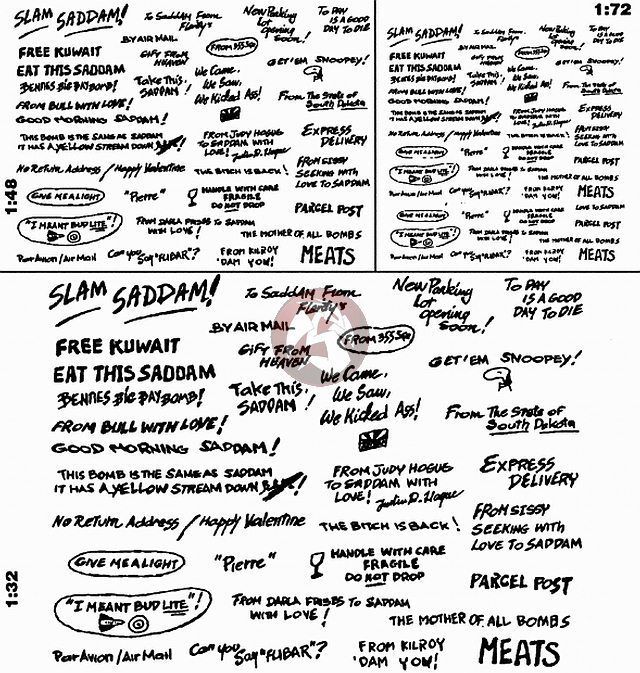 SLAM SADDAM!
To Saddam From
Flerdy's
New Parking
Lot
opening
Soon!
To DAY
IS A GOOD
DAY TO DIE
BY AIR MAIL
FROM 355
FREE KUWAIT
GIFT FROM
HEAVEN
EAT THIS SADDAM
We Came,
We Saw,
We Kicked Ass!
GET 'EM SNOOPEY!
BENNES BIG DAY BOMB!
Take This,
SADDAM!
FROM BULL WITH LOVE!
From The State of
South Dakota
GOOD MORNING SADDAM!
THIS BOMB IS THE SAME AS SADDAM
IT HAS A YELLOW STREAM DOWN
FROM JUDY HOGUE
TO SADDAM WITH
LOVE!
EXPRESS
DELIVERY
No Return Address / Happy Valentine
THE BITCH IS BACK!
FROM SISSY
SEEKING WITH
LOVE TO SADDAM
GIVE ME A LIGHT
"Pierre"
HANDLE WITH CARE
FRAGILE
DO NOT DROP
PARCEL POST
"I MEANT BUD LITE"!
FROM DARLA TO SADDAM
WITH LOVE!
THE MOTHER OF ALL BOMBS
Par Avion / Air Mail
Can you
Say "FLIBAR"?
FROM KILROY
'DAM YOW!
MEATS
1:48
1:72
SLAM SADDAM!
To Saddam From
New Parking
Lot
opening
Soon!
To DAY
IS A GOOD
DAY TO DIE
BY AIR MAIL
FREE KUWAIT
GIFT FROM
HEAVEN
EAT THIS SADDAM
We Came,
We Saw,
We Kicked Ass!
GET 'EM SNOOPEY!
BENNES BIG DAY BOMB!
Take This,
SADDAM!
FROM BULL WITH LOVE!
From The State of
South Dakota
GOOD MORNING SADDAM!
THIS BOMB IS THE SAME AS SADDAM
IT HAS A YELLOW STREAM DOWN
FROM JUDY HOGUE
TO SADDAM WITH
LOVE!
EXPRESS
DELIVERY
No Return Address / Happy Valentine
THE BITCH IS BACK!
FROM SISSY
SEEKING WITH
LOVE TO SADDAM
GIVE ME A LIGHT
"Pierre"
HANDLE WITH CARE
FRAGILE
DO NOT DROP
PARCEL POST
"I MEANT BUD LITE"!
FROM DARLA TO SADDAM
WITH LOVE!
THE MOTHER OF ALL BOMBS
Par Avion / Air Mail
Can you
Say "FLIBAR"?
FROM KILROY
'DAM YOW!
MEATS
FROM SISSY
SEEKING WITH
LOVE TO SADDAM
GIVE ME A LIGHT
"Pierre"
HANDLE WITH CARE
FRAGILE
DO NOT DROP
PARCEL POST
"I MEANT BUD LITE"!
FROM DARLA TO SADDAM
WITH LOVE!
THE MOTHER OF ALL BOMBS
Par Avion / Air Mail
Can you
Say "FLIBAR"?
FROM KILROY
'DAM YOW!
MEATS
SLAM SADDAM!
To Saddam From
Flerdy's
New Parking
Lot
opening
Soon!
To DAY
IS A GOOD
DAY TO DIE
BY AIR MAIL
FROM 355
FREE KUWAIT
GIFT FROM
HEAVEN
EAT THIS SADDAM
We Came,
We Saw,
We Kicked Ass!
GET 'EM SNOOPEY!
BENNES BIG DAY BOMB!
Take This,
SADDAM!
FROM BULL WITH LOVE!
From The State of
South Dakota
GOOD MORNING SADDAM!
THIS BOMB IS THE SAME AS SADDAM
IT HAS A YELLOW STREAM DOWN
FROM JUDY HOGUE
TO SADDAM WITH
LOVE! Justin D. Hogue
EXPRESS
DELIVERY
No Return Address / Happy Valentine
THE BITCH IS BACK!
FROM SISSY
SEEKING WITH
LOVE TO SADDAM
GIVE ME A LIGHT
"Pierre"
HANDLE WITH CARE
FRAGILE
DO NOT DROP
PARCEL POST
"I MEANT BUD LITE"!
FROM DARLA FRISBS To SADDAM
WITH LOVE!
THE MOTHER OF ALL BOMBS
Par Avion / Air Mail
Can you
Say "FLIBAR"?
FROM KILROY
'DAM YOW!
MEATS
1:32